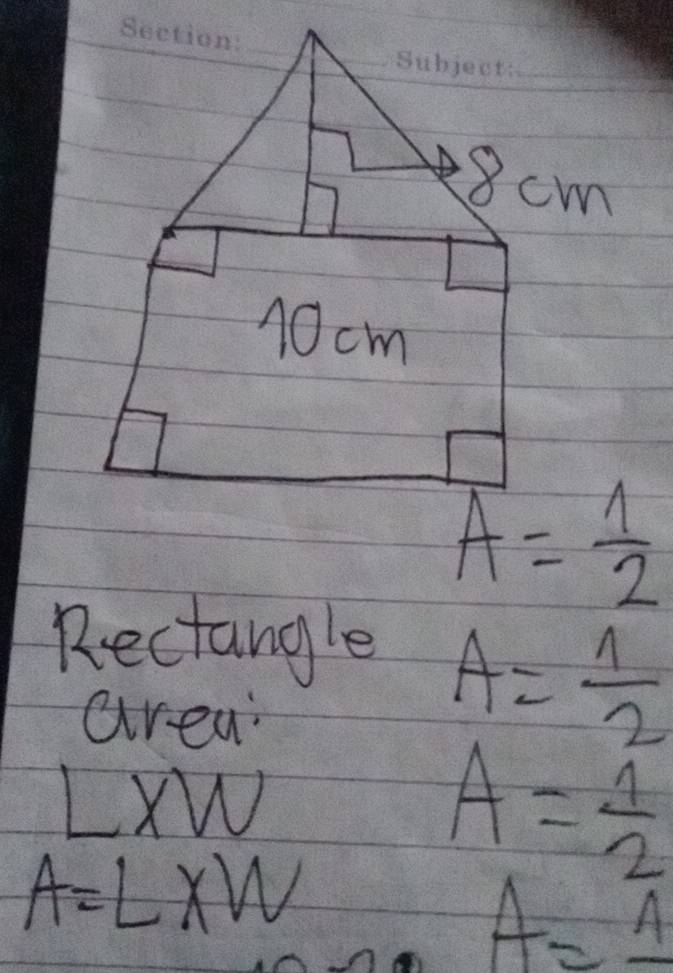 Section:
Subject:
8 cm
10 cm
A = 1/2
Rectangle
area:
A = 1/2
LXW
A = 1/2
A = LXW